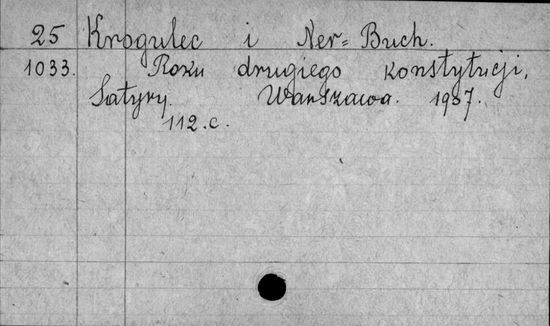 25 Krogulec i Ner=Buch.
1033. Roku drugiego konstytucji.
Satyry. Warszawa. 1907.
112.c.